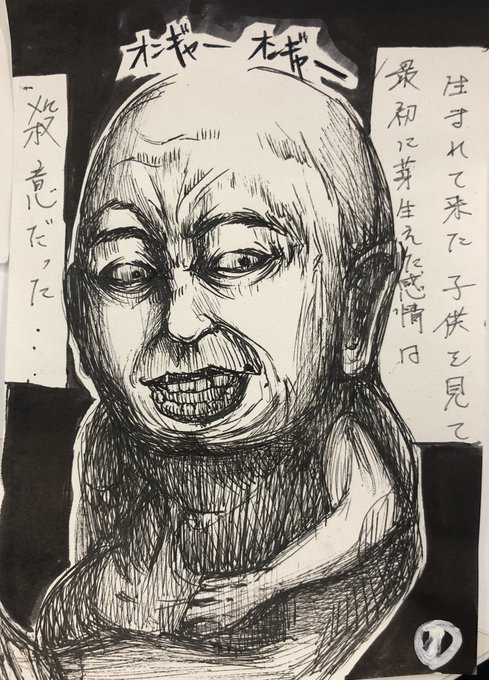 オンギャー オンギャー
生まれて来た子供を見て
最初に芽生えた感情は
殺意だった...